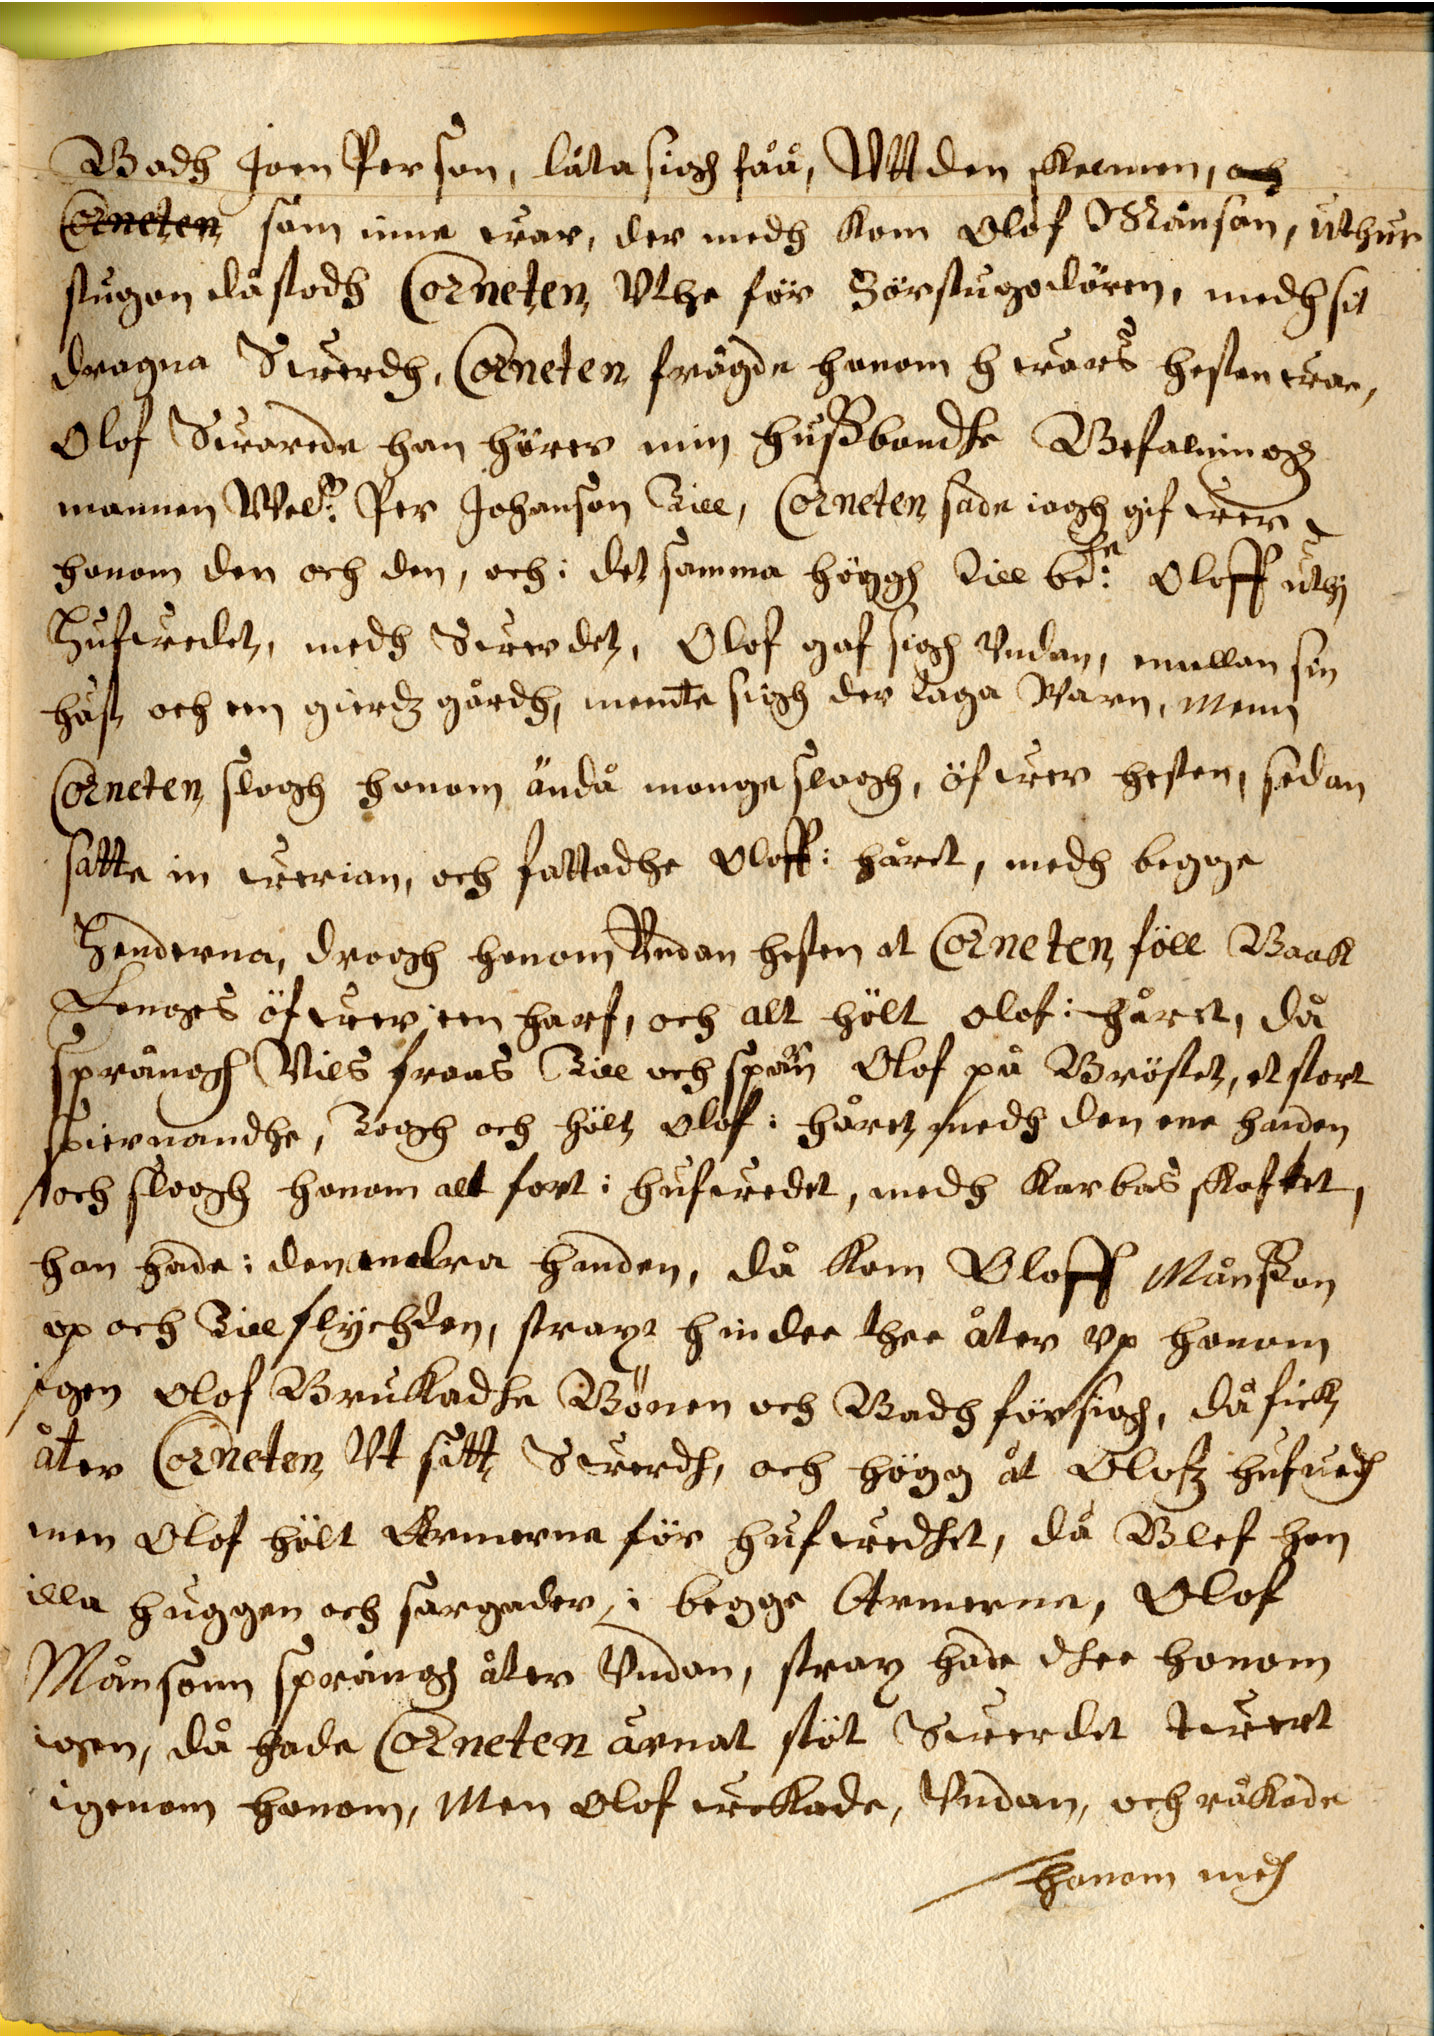 Badh Joen Person, låta sigh fåå, Utt den skelmen, och
Corneten som inne war, der medh kom Olof Månson, uthur
stugon då stodh Corneten, Uthe för Förstugodören, medh sit
dragna Swerdh, Corneten, frågde honom hwars hesten war,
Olof Swarade han hörer min hussbondhe Befalningz
mannen Welb: Per Johanson Till, Corneten, sade iagh gifwer
honom den och den, och i det samma höggh Till be:te Oloff uthj
Hufwedet, medh Swerdet, Olof gaf sigh Undan, emellan sin
häst och een gierdz gårdh, mente sigh der taga Warn, Menn
Corneten, slogh honom ändå monge slagh, öfwer hesten, sedan
satte in werian, och fattadhe Oloff i håret, medh begge
Henderna, droogh honom Undan hesten at Corneten, föll Baak
Lenges öfwer een harf, och alt hölt Olof i håret, då
språngh Nils fraas Till och span Olof på Bröstet, et stort
spiernandhe, Togh och hölt Olof i håret, medh den ene handen
och sloogh honom alt fort i hufwedet, medh Karbas skafftet,
han hade i den andra handen, då kom Oloff Månsson
op och Till flychten, straxt hindee thee åter Up honom
igen Olof Brukadhe Bönen och Badh för sigh, då fick
åter Corneten, Ut sitt Swerdh, och högg åt Olofz hufuedh
men Olof hölt Armerna för hufwedhet, då Blef han
illa huggen och sargader, i begge Armerna, Olof
Månsonn språngh åter Undan, strax hade dhee honom
igen, då hade Corneten ärnat stöt Swerdet twert
igenom honom, Men Olof wekade, Undan, och råkade
honom medh